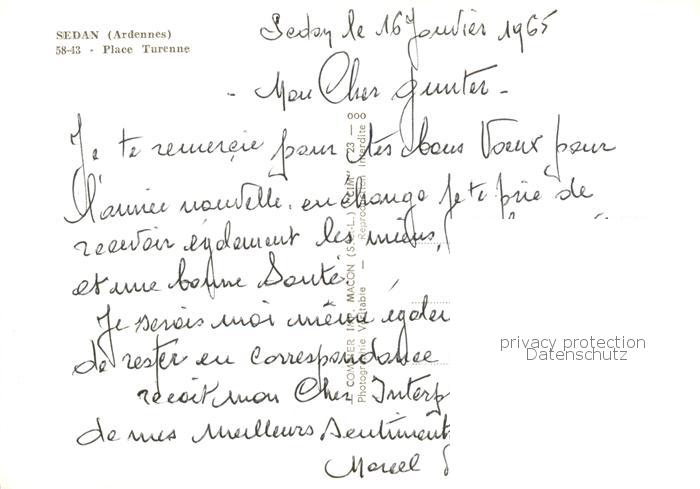 SEDAN (Ardennes)
58-43 - Place Turenne
Sedan le 16 Janvier 1965
- Mon Cher Gunter -
Je te remercie pour tes bons Vœux pour
l'année nouvelle, en échange je te prie de
recevoir également les miens,
et une bonne Santé
Je serais moi même égalem
de rester en correspondance
reçoit mon Cher Interp
de mes meilleurs Sentiment
Marcel
COMBIER IMP. MACON (S.-&-L.) "CIM" 23 — ooo
Photographie Véritable — Reproduction Interdite
privacy protection
Datenschutz